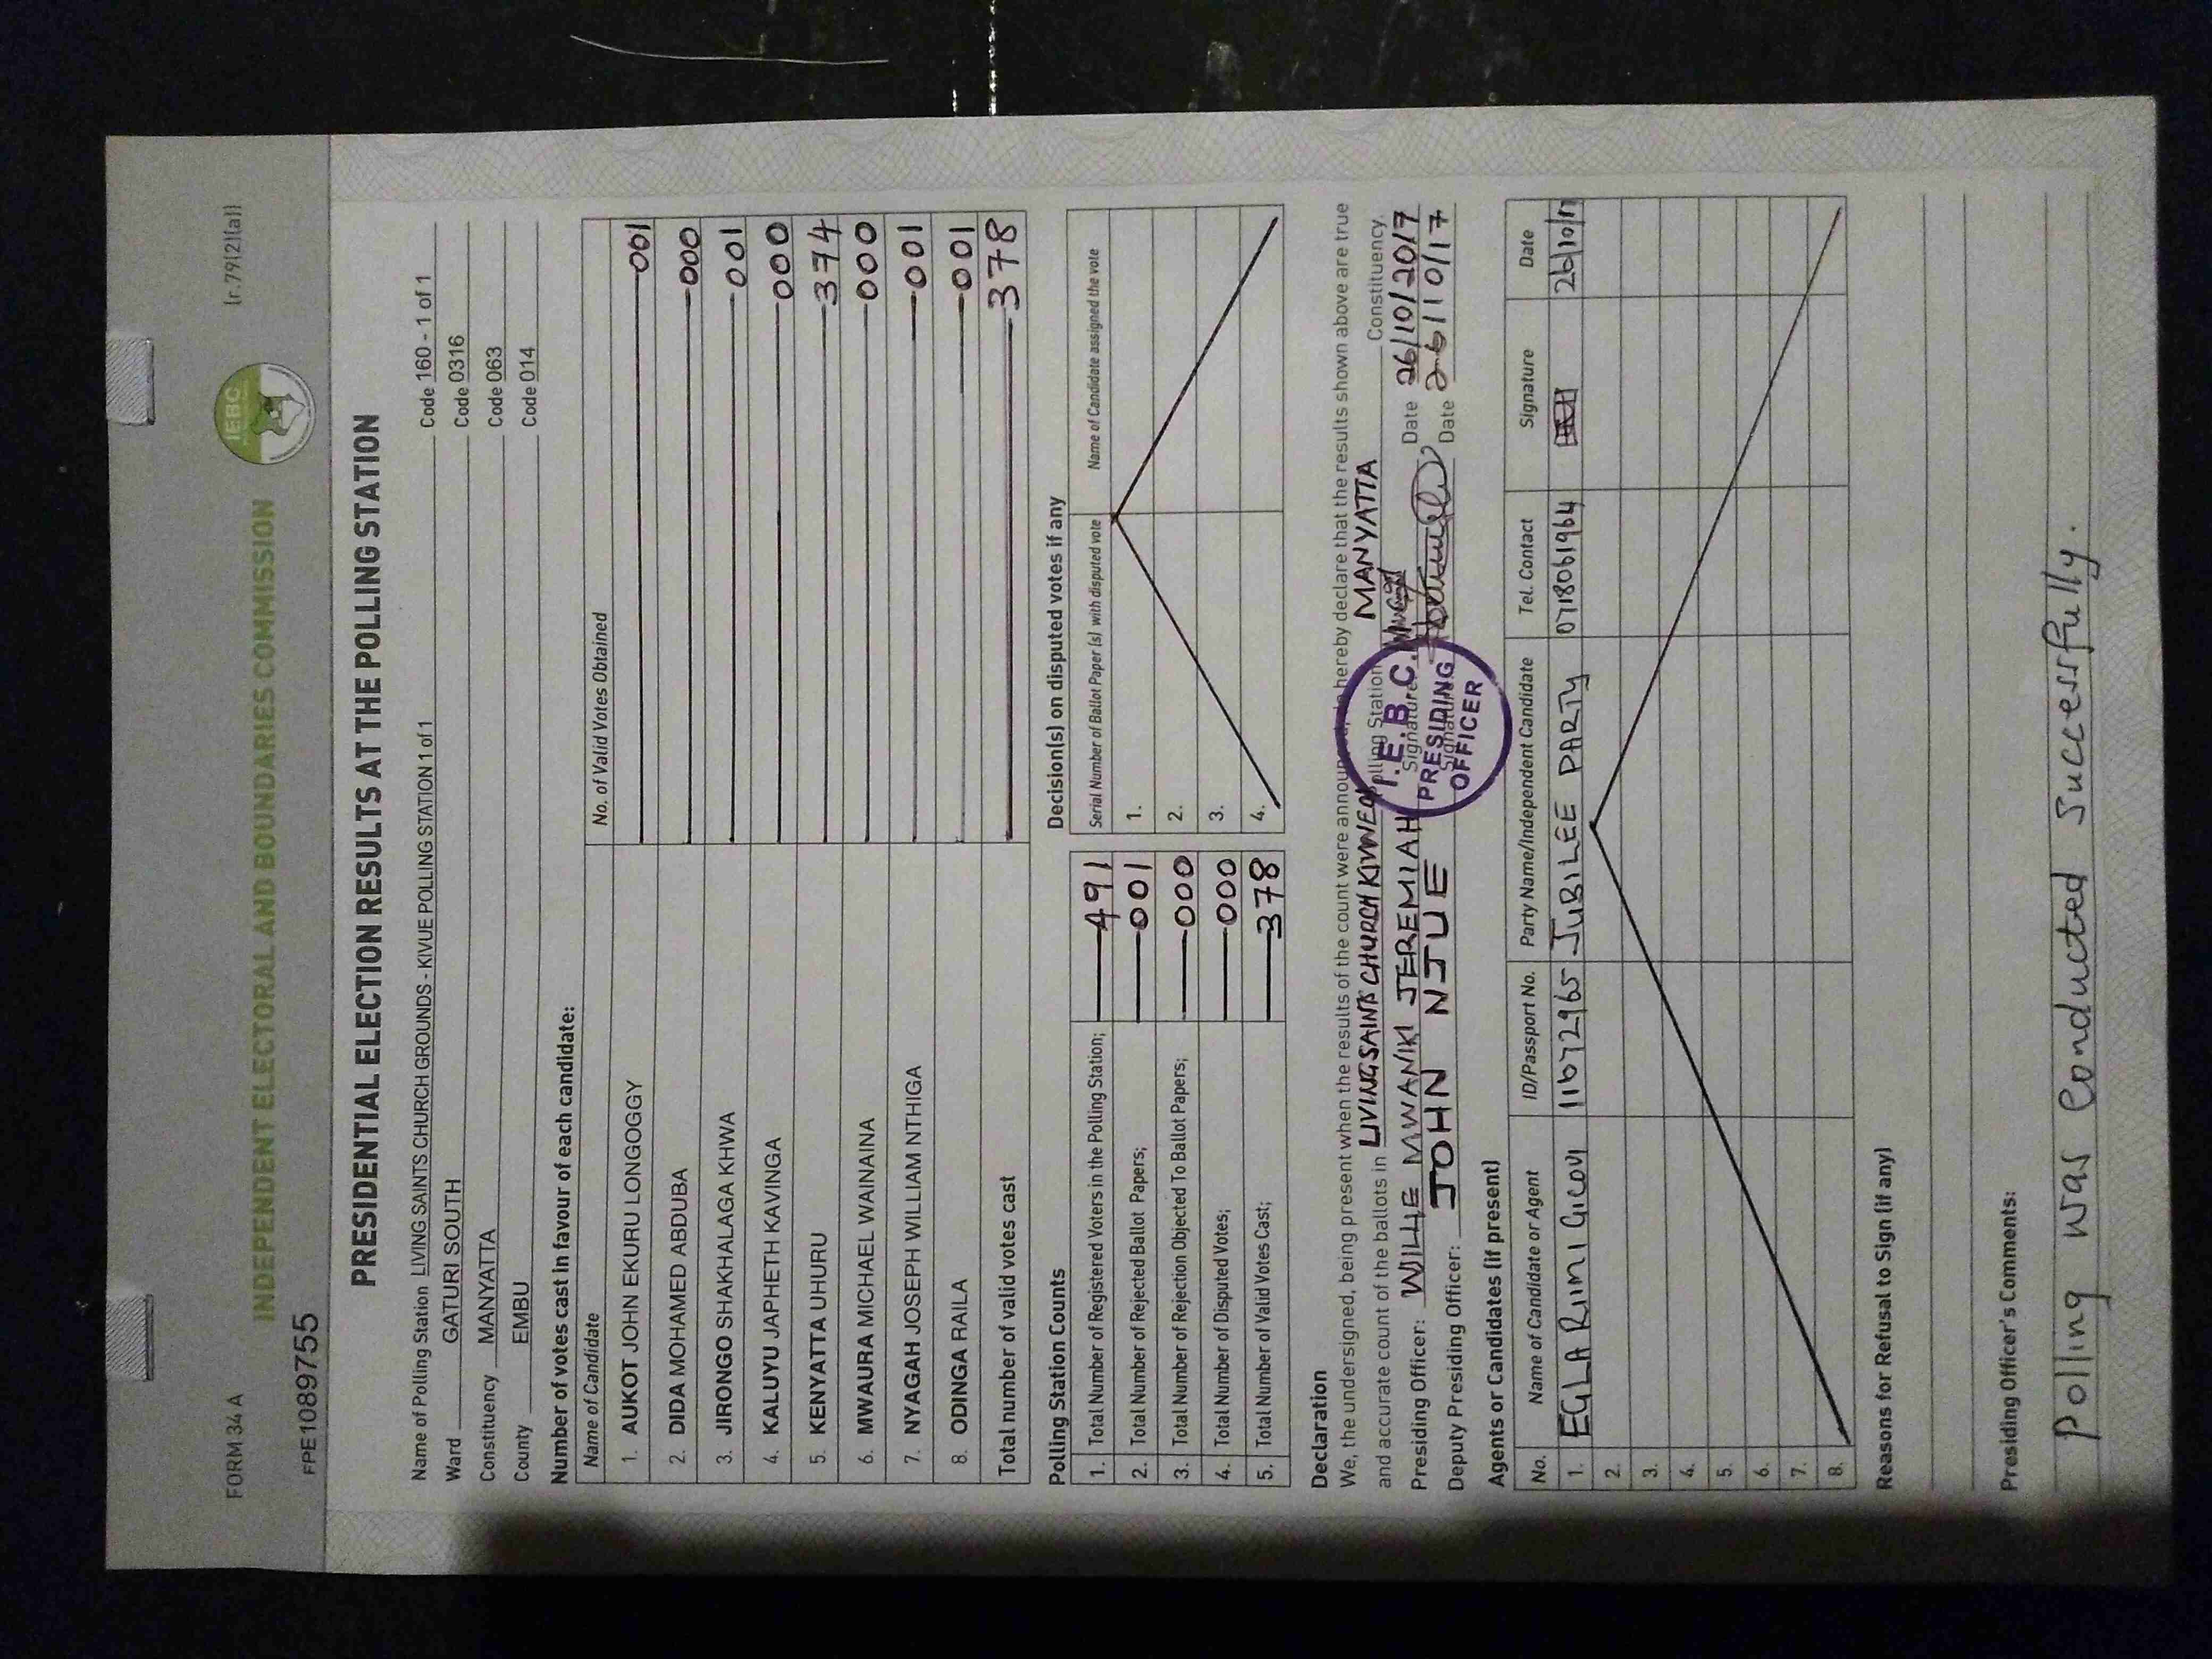 FORM 34 A
[r.79(2)(a)]
IEBC
INDEPENDENT ELECTORAL AND BOUNDARIES COMMISSION
FPE1089755
PRESIDENTIAL ELECTION RESULTS AT THE POLLING STATION
Name of Polling Station LIVING SAINTS CHURCH GROUNDS - KIVUE POLLING STATION 1 of 1 Code 160 - 1 of 1
Ward GATURI SOUTH Code 0316
Constituency MANYATTA Code 063
County EMBU Code 014
Number of votes cast in favour of each candidate:
Name of Candidate No. of Valid Votes Obtained
1. AUKOT JOHN EKURU LONGOGGY 001
2. DIDA MOHAMED ABDUBA 000
3. JIRONGO SHAKHALAGA KHWA 001
4. KALUYU JAPHETH KAVINGA 000
5. KENYATTA UHURU 374
6. MWAURA MICHAEL WAINAINA 000
7. NYAGAH JOSEPH WILLIAM NTHIGA 001
8. ODINGA RAILA 001
Total number of valid votes cast 378
Polling Station Counts
1. Total Number of Registered Voters in the Polling Station; 491
2. Total Number of Rejected Ballot Papers; 001
3. Total Number of Rejection Objected To Ballot Papers; 000
4. Total Number of Disputed Votes; 000
5. Total Number of Valid Votes Cast; 378
Decision(s) on disputed votes if any
Serial Number of Ballot Paper (s) with disputed vote Name of Candidate assigned the vote
1.
2.
3.
4.
Declaration
We, the undersigned, being present when the results of the count were announced, do hereby declare that the results shown above are true
and accurate count of the ballots in LIVING SAINTS CHURCH KIVUE Polling Station MANYATTA Constituency.
Presiding Officer: WILLIE MWANIKI JEREMIAH Signature Date 26/10/2017
Deputy Presiding Officer: JOHN NJUE Signature Date 26/10/17
I.E.B.C.
PRESIDING
OFFICER
Agents or Candidates (if present)
No. Name of Candidate or Agent ID/Passport No. Party Name/Independent Candidate Tel. Contact Signature Date
1. 11672965 JUBILEE PARTY 0718061964 26/10/17
2.
3.
4.
5.
6.
7.
8.
Reasons for Refusal to Sign (if any)
Presiding Officer's Comments:
Polling was conducted successfully.